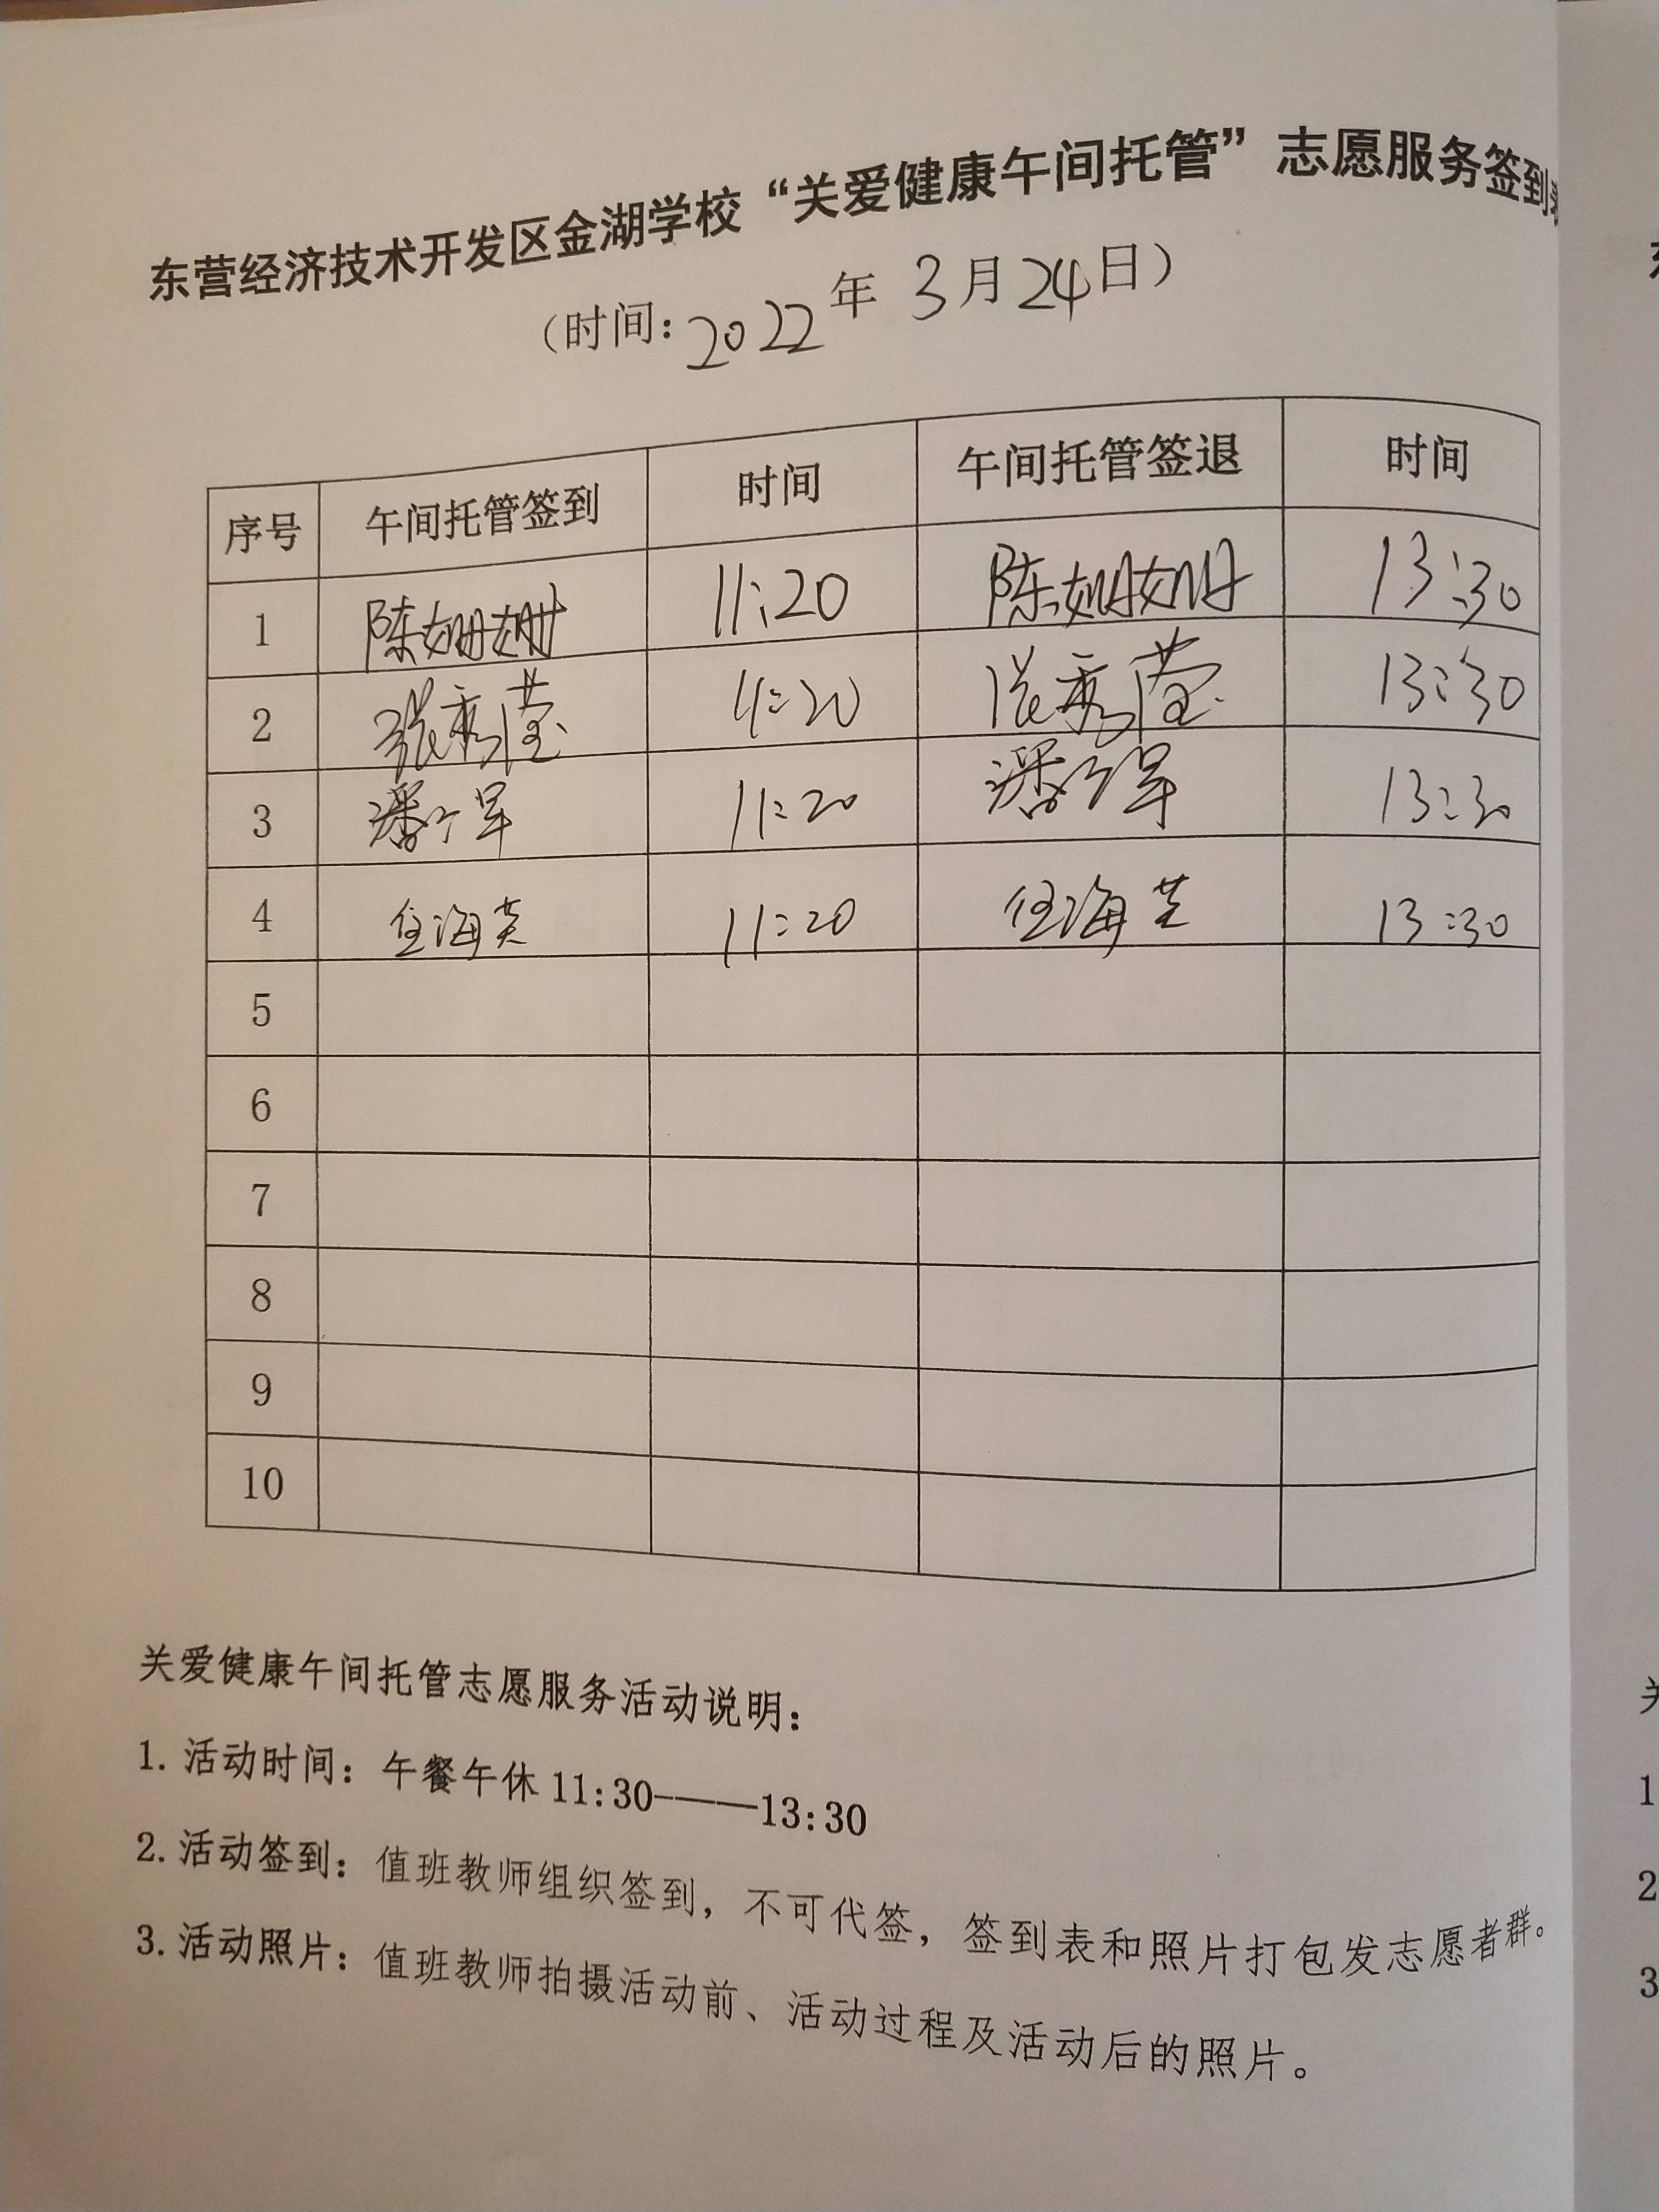 东营经济技术开发区金湖学校“关爱健康午间托管”志愿服务签到
（时间：2022年3月24日）
序号 午间托管签到 时间 午间托管签退 时间
1 陈姗姗 11:20 陈姗姗 13:30
2 张秀莹 11:20 张秀莹 13:30
3 潘 军 11:20 潘 军 13:30
4 任海英 11:20 任海英 13:30
5
6
7
8
9
10
关爱健康午间托管志愿服务活动说明：
1. 活动时间：午餐午休 11:30———13:30
2. 活动签到：值班教师组织签到，不可代签，签到表和照片打包发志愿者群。
3. 活动照片：值班教师拍摄活动前、活动过程及活动后的照片。
关
1
2
3